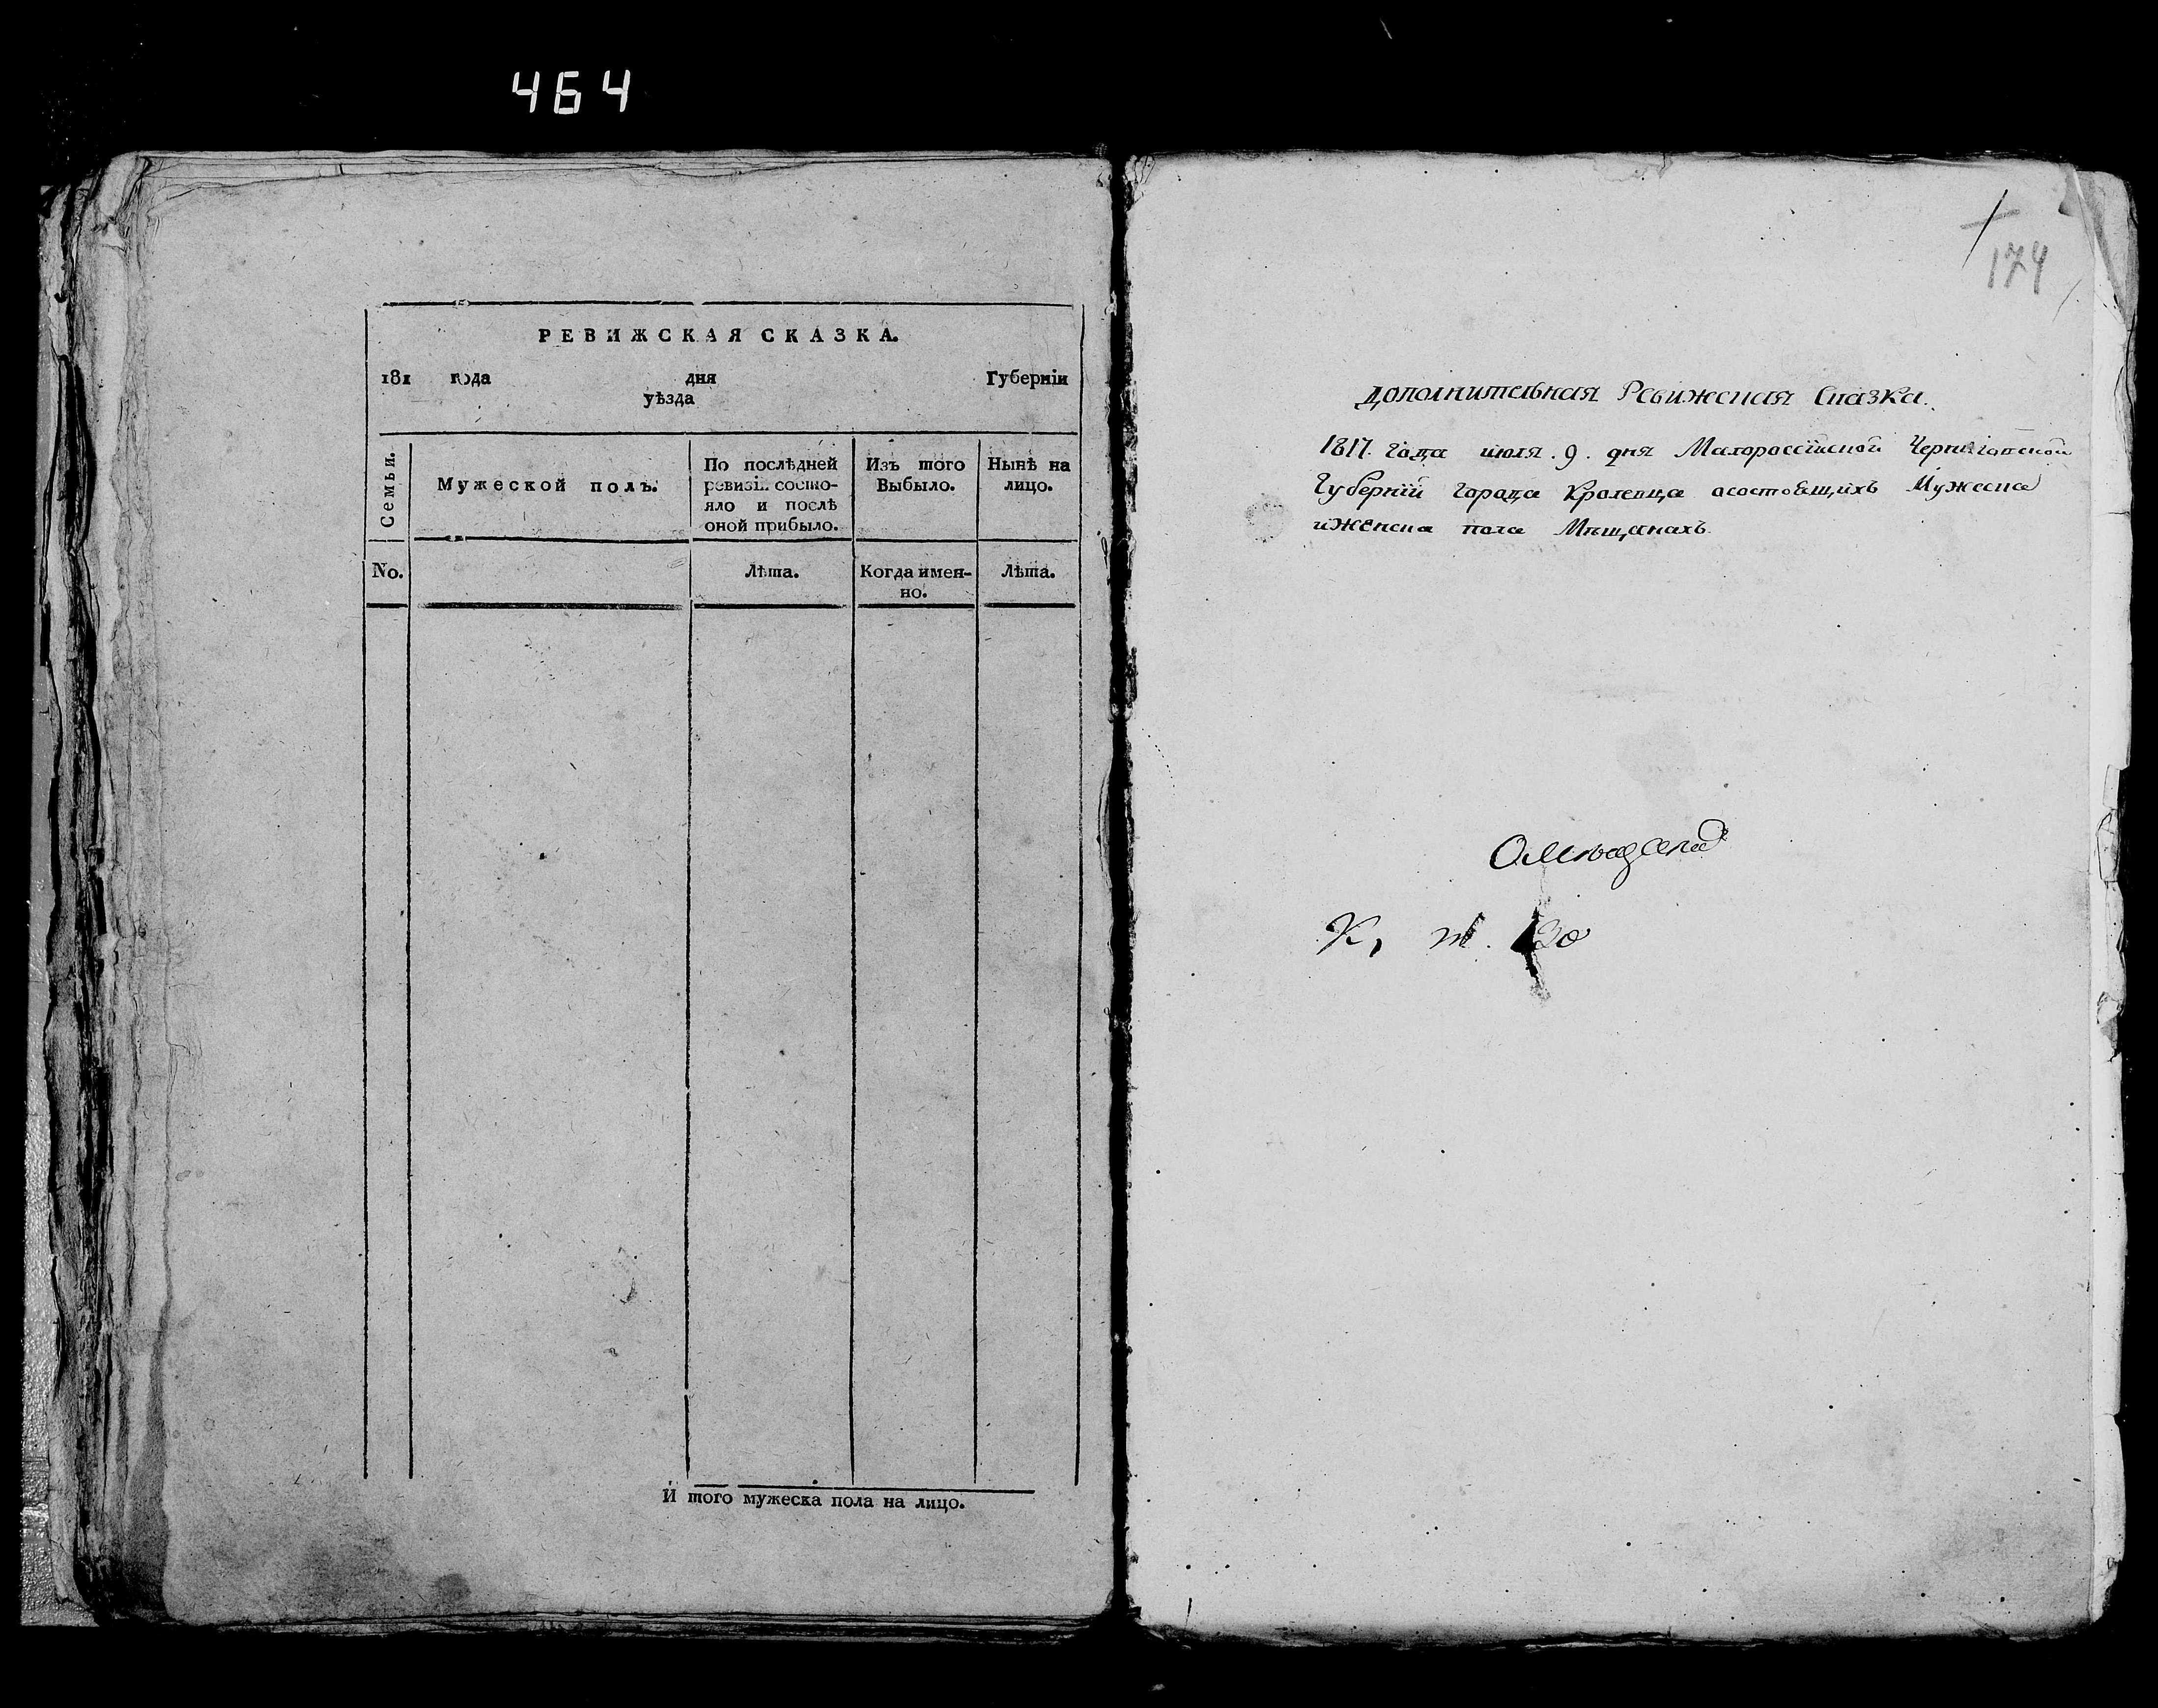 464
РЕВИЖСКАЯ СКАЗКА.
181 года дня Губернїи
уѣзда
Семьи.
Мужеской полъ.
По послѣдней
ревизїи состо-
яло и послѣ
оной прибыло.
Изъ того
Выбыло.
Нынѣ на
лицо.
No.
Лѣта.
Когда имен-
но.
Лѣта.
И того мужеска пола на лицо.
174
Дополнительная Ревижская Сказка.
1817. года июля. 9. дня Малороссїйской Черниговской
Губернїй города Кролевца осостоящихъ Мужеска
иженска пола Мѣщанахъ.
К, 30